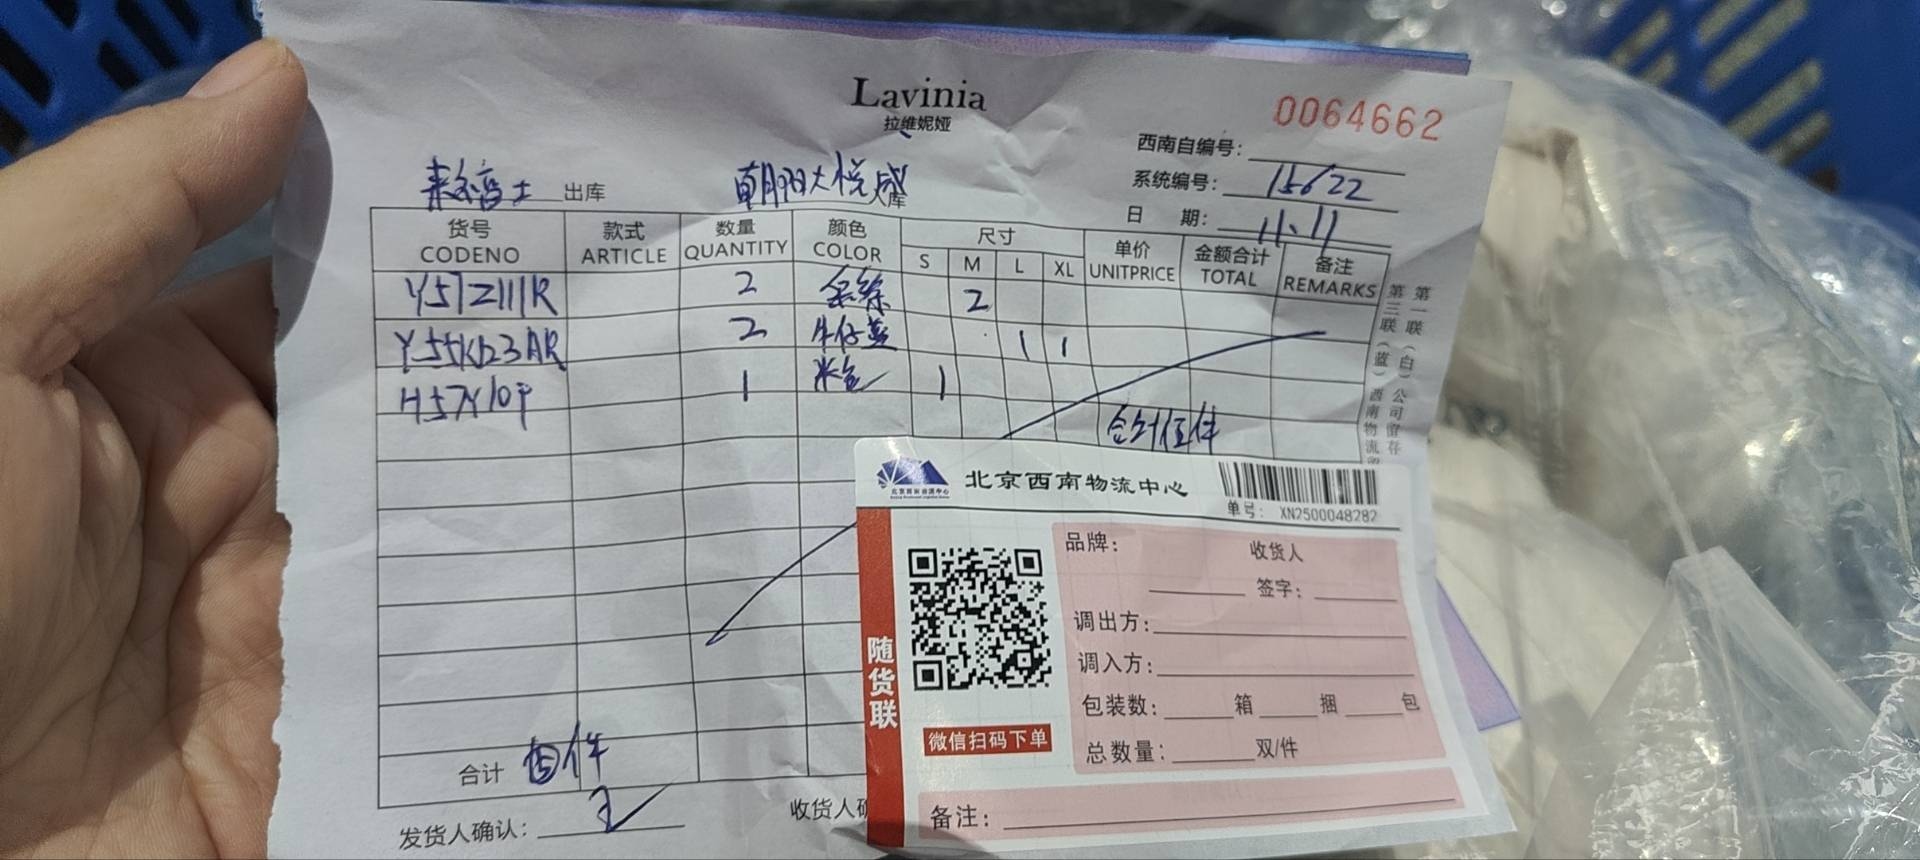 Lavinia
拉维妮娅
0064662
西南自编号:
系统编号: 15622
日 期: 11.11
出库
朝阳大悦城 入库
货号 款式 数量 颜色 尺寸 单价 金额合计 备注
CODENO ARTICLE QUANTITY COLOR S M L XL UNITPRICE TOTAL REMARKS
2 2
2 牛仔蓝 1 1
H57Y10P 1 米色 1
合计伍件
第一联(白)公司留存
第三联(蓝)西南物流
北京西南物流中心
北京西南物流中心
单号: XN2500048282
随货联
微信扫码下单
品牌: 收货人
签字:
调出方:
调入方:
包装数: 箱 捆 包
总数量: 双/件
备注:
合计 件
发货人确认:
收货人确